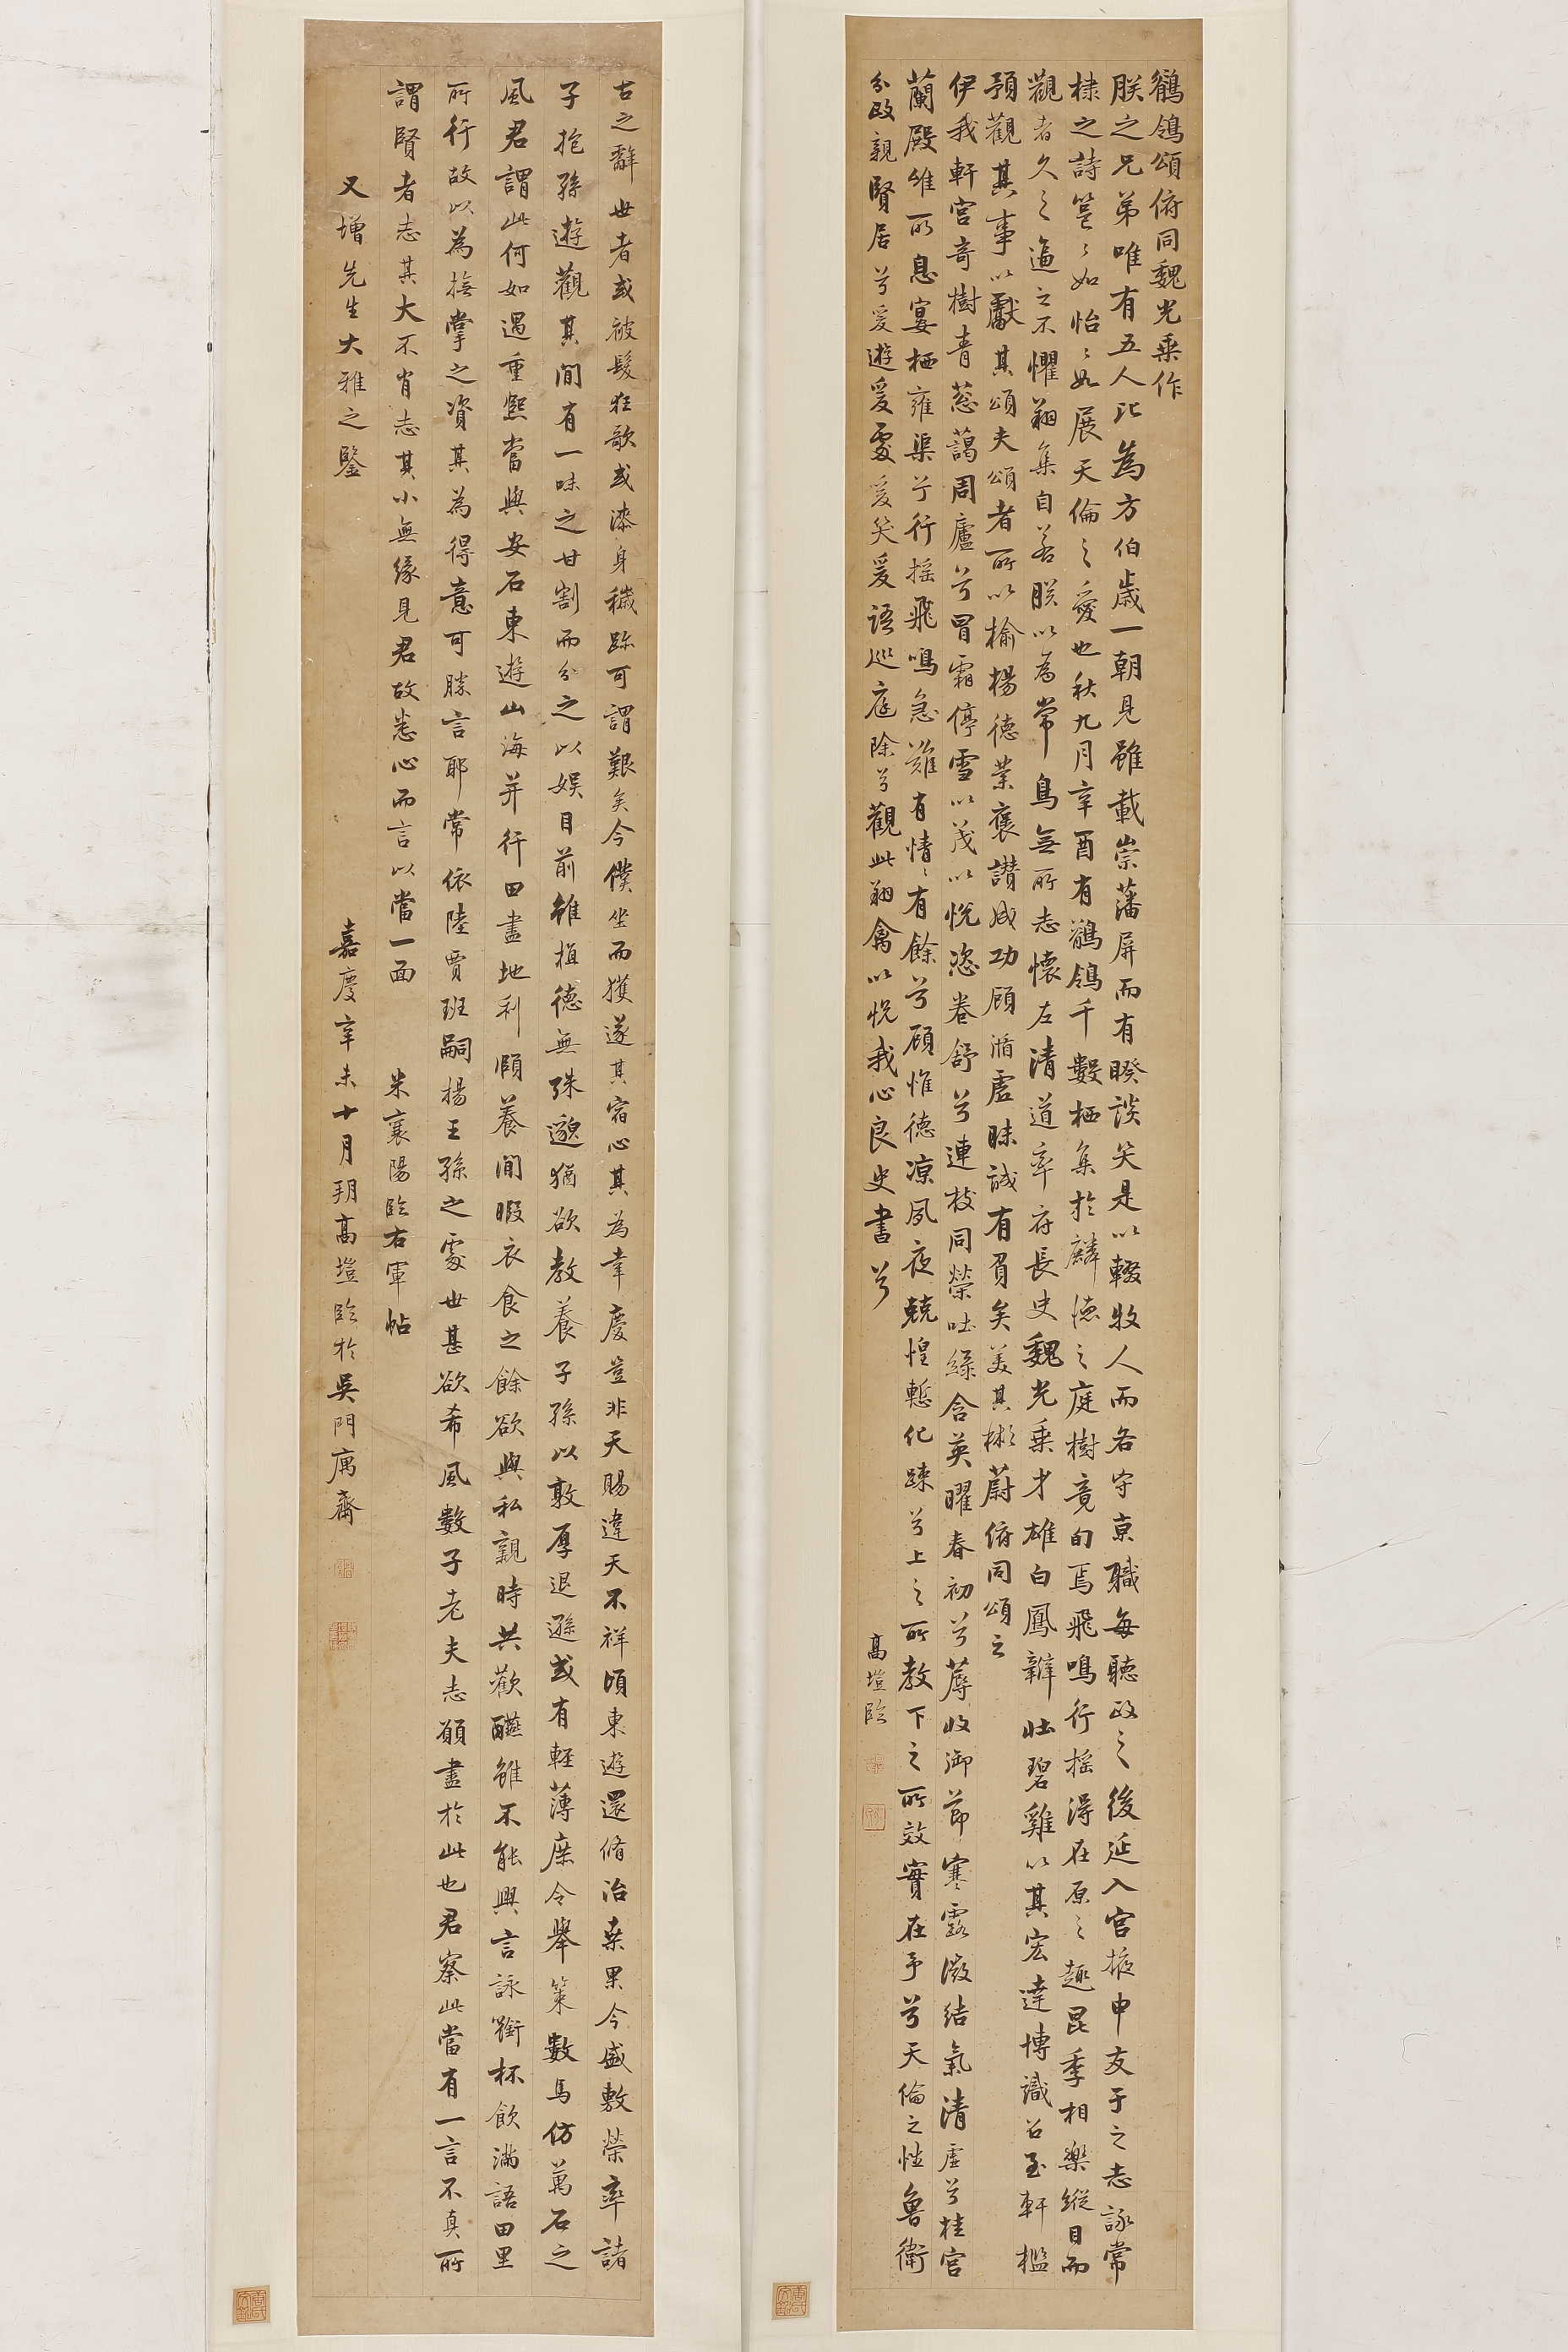 鶺鴒頌俯同魏光乘作
朕之兄弟唯有五人比為方伯歲一朝見雖載崇藩屏而有睽談笑是以輟牧人而各守京職每聽政之後延入宮掖申友于之志詠常
棣之詩邕邕如怡怡如展天倫之愛也秋九月辛酉有鶺鴒千數栖集於麟德之庭樹竟旬焉飛鳴行搖得在原之趣昆季相樂縱目而
觀者久之逼之不懼翔集自若朕以為常鳥無所志懷左清道率府長史魏光乘才雄白鳳辯壯碧雞以其宏達博識召至軒檻
預觀其事以獻其頌夫頌者所以揄揚德業褒讚成功顧循虛昧誠有負矣美其彬蔚俯同頌之
伊我軒宮奇樹青蔥藹周廬兮冒霜停雪以茂以悅恣卷舒兮連枝同榮吐綠含英曜春初兮蓐收御節寒露微結氣清虛兮桂宮
蘭殿唯所息宴栖雍渠兮行搖飛鳴急難有情情有餘兮顧惟德涼夙夜兢惶慙化疎兮上之所教下之所效實在予兮天倫之性魯衛
分政親賢居兮爰遊爰處爰笑爰語巡庭除兮觀此翔禽以悅我心良史書兮
高塏臨
古之辭世者或被髮狂歌或漆身穢跡可謂艱矣今僕坐而獲遂其宿心其為幸慶豈非天賜違天不祥頃東遊還脩治桑果今盛敷榮率諸
子抱孫遊觀其間有一味之甘割而分之以娛目前雖植德無殊邈猶欲教養子孫以敦厚退遜或有輕薄庶令舉策數馬仿萬石之
風君謂此何如遇重熙當與安石東遊山海并行田盡地利頤養閒暇衣食之餘欲與私親時共歡醼雖不能興言詠銜杯飲滿語田里
所行故以為撫掌之資其為得意可勝言耶常依陸賈班嗣揚王孫之處世甚欲希風數子老夫志願盡於此也君察此當有一言不真所
謂賢者志其大不肖志其小無緣見君故悉心而言以當一面
米襄陽臨右軍帖
又增先生大雅之鑒
嘉慶辛未十月玥高塏臨於吳門寓齋